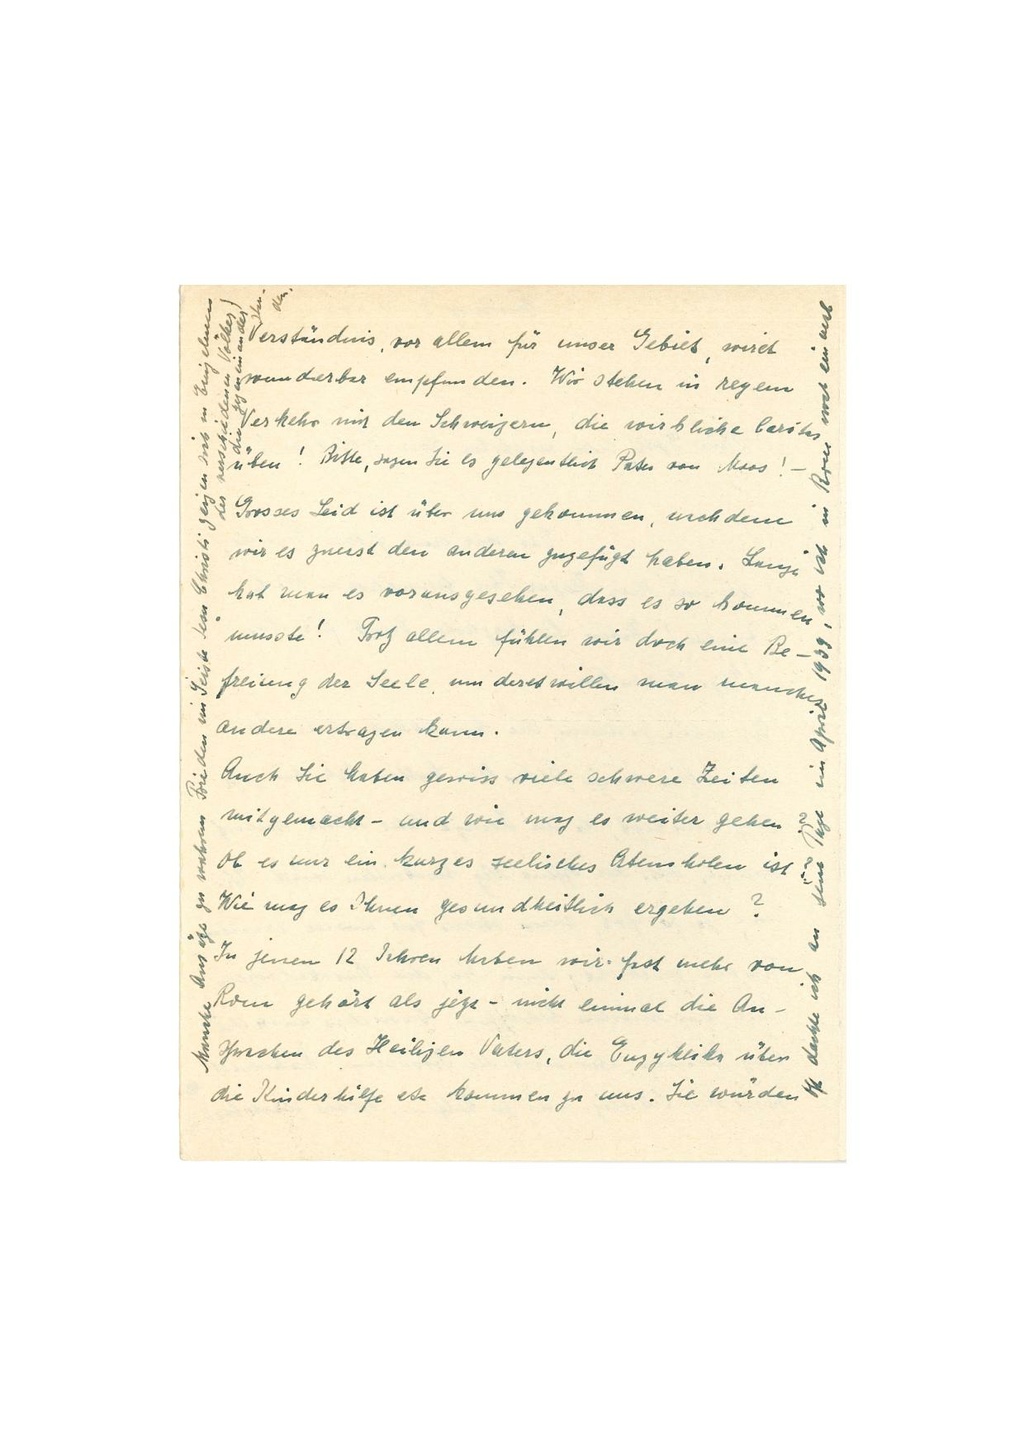 Verständnis, vor allem für unser Gebiet, wird
wunderbar empfunden. Wir stehen in regem
Verkehr mit den Schweizern, die wirkliche Caritas
üben! Bitte, sagen Sie es gelegentlich Pater von Moos! –
Grosses Leid ist über uns gekommen, nachdem
wir es zuerst den anderen zugefügt haben. Lange
hat man es vorausgesehen, dass es so kommen
musste! Trotz allem fühlen wir doch eine Be–
freiung der Seele, um deretwillen man manches
andere ertragen kann.
Auch Sie haben gewiss viele schwere Zeiten
mitgemacht – und wie mag es weiter gehen?
Ob es nur ein kurzes seelisches Atemholen ist?
Wie mag es Ihnen gesundheitlich ergehen?
In jenen 12 Jahren haben wir fast mehr von
Rom gehört als jetzt – nicht einmal die An–
sprachen des Heiligen Vaters, die Enzyklika über
die Kinderhilfe etc kommen zu uns. Sie würden
Manche Ansätze zu wahrem Frieden im Geiste Jesu Christi zeigen sich in
der verschiedenen Völker,
die
den.
Oft dachte ich an jene Tage im April 1939, wo ich in Rom